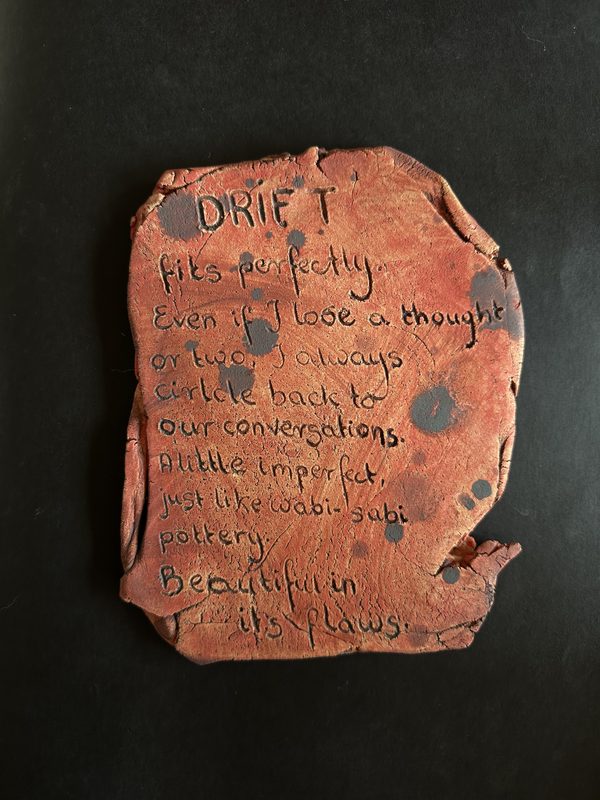 DRIFT
fits perfectly.
Even if I lose a thought
or two, I always
cirlcle back to
our conversations.
A little imperfect,
just like wabi-sabi
pottery.
Beautiful in
its flaws.